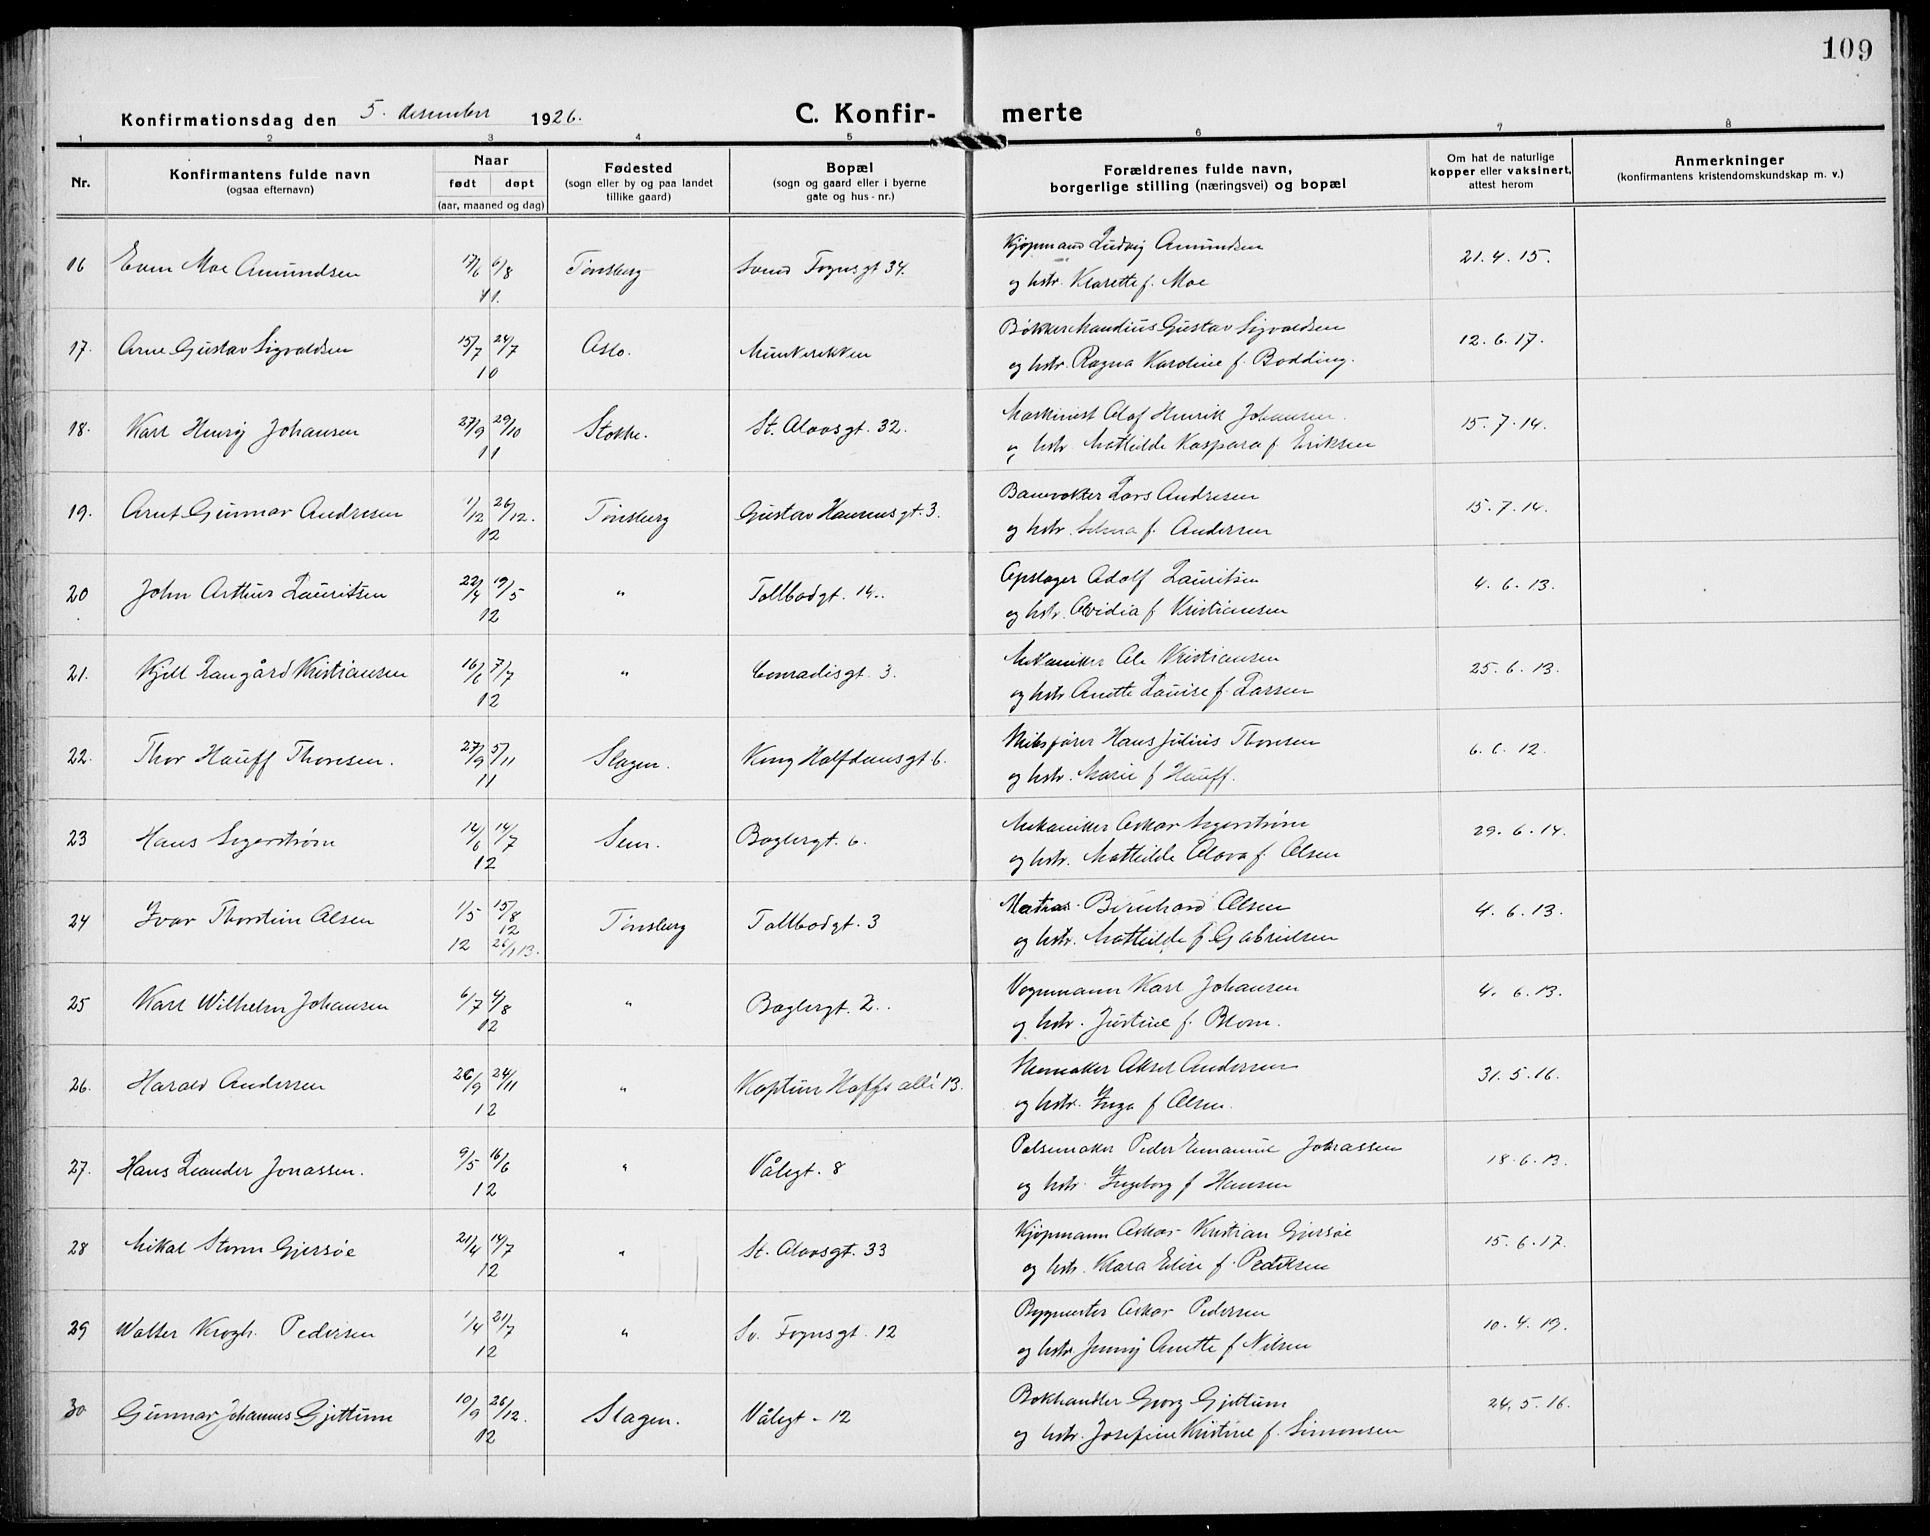 109
Konfirmationsdag den 5. desember 1926.
C. Konfir- merte
1 2 3 4 5 6 7 8
Nr.
Konfirmantens fulde navn
(ogsaa efternavn)
Naar
født døpt
(aar, maaned og dag)
Fødested
(sogn eller by og paa landet
tillike gaard)
Bopæl
(sogn og gaard eller i byerne
gate og hus-nr.)
Forældrenes fulde navn,
borgerlige stilling (næringsvei) og bopæl
Om hat de naturlige
kopper eller vaksinert,
attest herom
Anmerkninger
(konfirmantens kristendomskundskap m. v.)
Kjøpmand Ludvig Amundsen
16 Even Moe Amundsen 17/6 6/8 Tønsberg Svend Foynsgt 34. 21. 4. 15.
11. og hstr. Klarette f. Moe
Bøkker Mandius Gustav Sigvaldsen
17. Arne Gustav Sigvaldsen 15/7 24/7 Oslo. Munkerekken 12. 6. 17.
10 og hstr. Ragna Karoline f. Bodding.
Maskinist Olaf Henrik Johansen
18. Karl Henry Johansen 27/9 29/10 Stokke. St. Olavsgt. 32. 15. 7. 14.
11 og hstr. Mathilde Kaspara f. Eriksen
Banevokter Lars Andresen
19. Arnt Gunnar Andresen 1/12 26/12. Tønsberg Gustav Hansensgt. 3. 15. 7. 14.
12 og hstr. Selma f. Andersen
Opslager Adolf Lauritsen
20 John Arthur Lauritsen 22/4 19/5 " Tollbodgt. 14.. 4. 6. 13.
12 og hstr. Ovidia f. Kristiansen
Mekaniker Ole Kristiansen
21. Kjell Langård Kristiansen 16/6 7/7 " Conradisgt. 3. 25. 6. 13.
12 og hstr Anette Louise f. Larsen
Skibsfører Hans Julius Thoresen
22. Thor Hauff Thoresen. 27/9 5/11 Slagen. Kong Halfdansgt 6. 6. 6. 12.
11 og hstr. Marie f Hauff.
Mekaniker Oskar Segerstrøm
23 Hans Segerstrøm 14/6 14/7 Sem. Baglergt. 6. 29. 6. 14.
12 og hstr. Mathilde Olava f. Olsen
Matros Bernhard Olsen
24 Ivar Thorstein Olsen 1/5 15/8 Tønsberg Tollbodgt. 3 4. 6. 13.
12
12 26/1 13. og hstr. Mathilde f Gabrielsen
Vognmann Karl Johansen
25 Karl Wilhelm Johansen 6/7 4/8 " Baglergt. 2.. 4. 6. 13.
12 og hstr. Justine f. Blom.
Skomaker Aksel Andersen
26. Harald Andersen 26/9 24/11 " Kaptein Hoffs allé 13. 31. 5. 16.
12 og hstr. Inga f Olsen.
Pølsemaker Peder Emanuel Jonassen
27. Hans Leander Jonassen. 9/5 16/6 " Vålegt. 8 18. 6. 13.
12 og hstr. Ingeborg f Hansen
Kjøpmann Oskar Kristian Gjersøe
28 Mikal Storm Gjersøe 21/4 14/7 " St. Olavsgt. 33 15. 6. 17.
12 og hstr. Klara Elise f. Pedersen
Byggmester Oskar Pedersen
29 Walter Krogh. Pedersen 1/4 21/7 " Sv. Foynsgt. 12 10. 4. 19.
12 og hstr. Jenny Anette f Nilsen
Bokhandler Georg Gjettum
30 Gunnar Johannes Gjettum 10/9 26/12. Slagen. Vålegt - 12 24. 5. 16.
12 og hstr. Josefine Kristine f. Simonsen